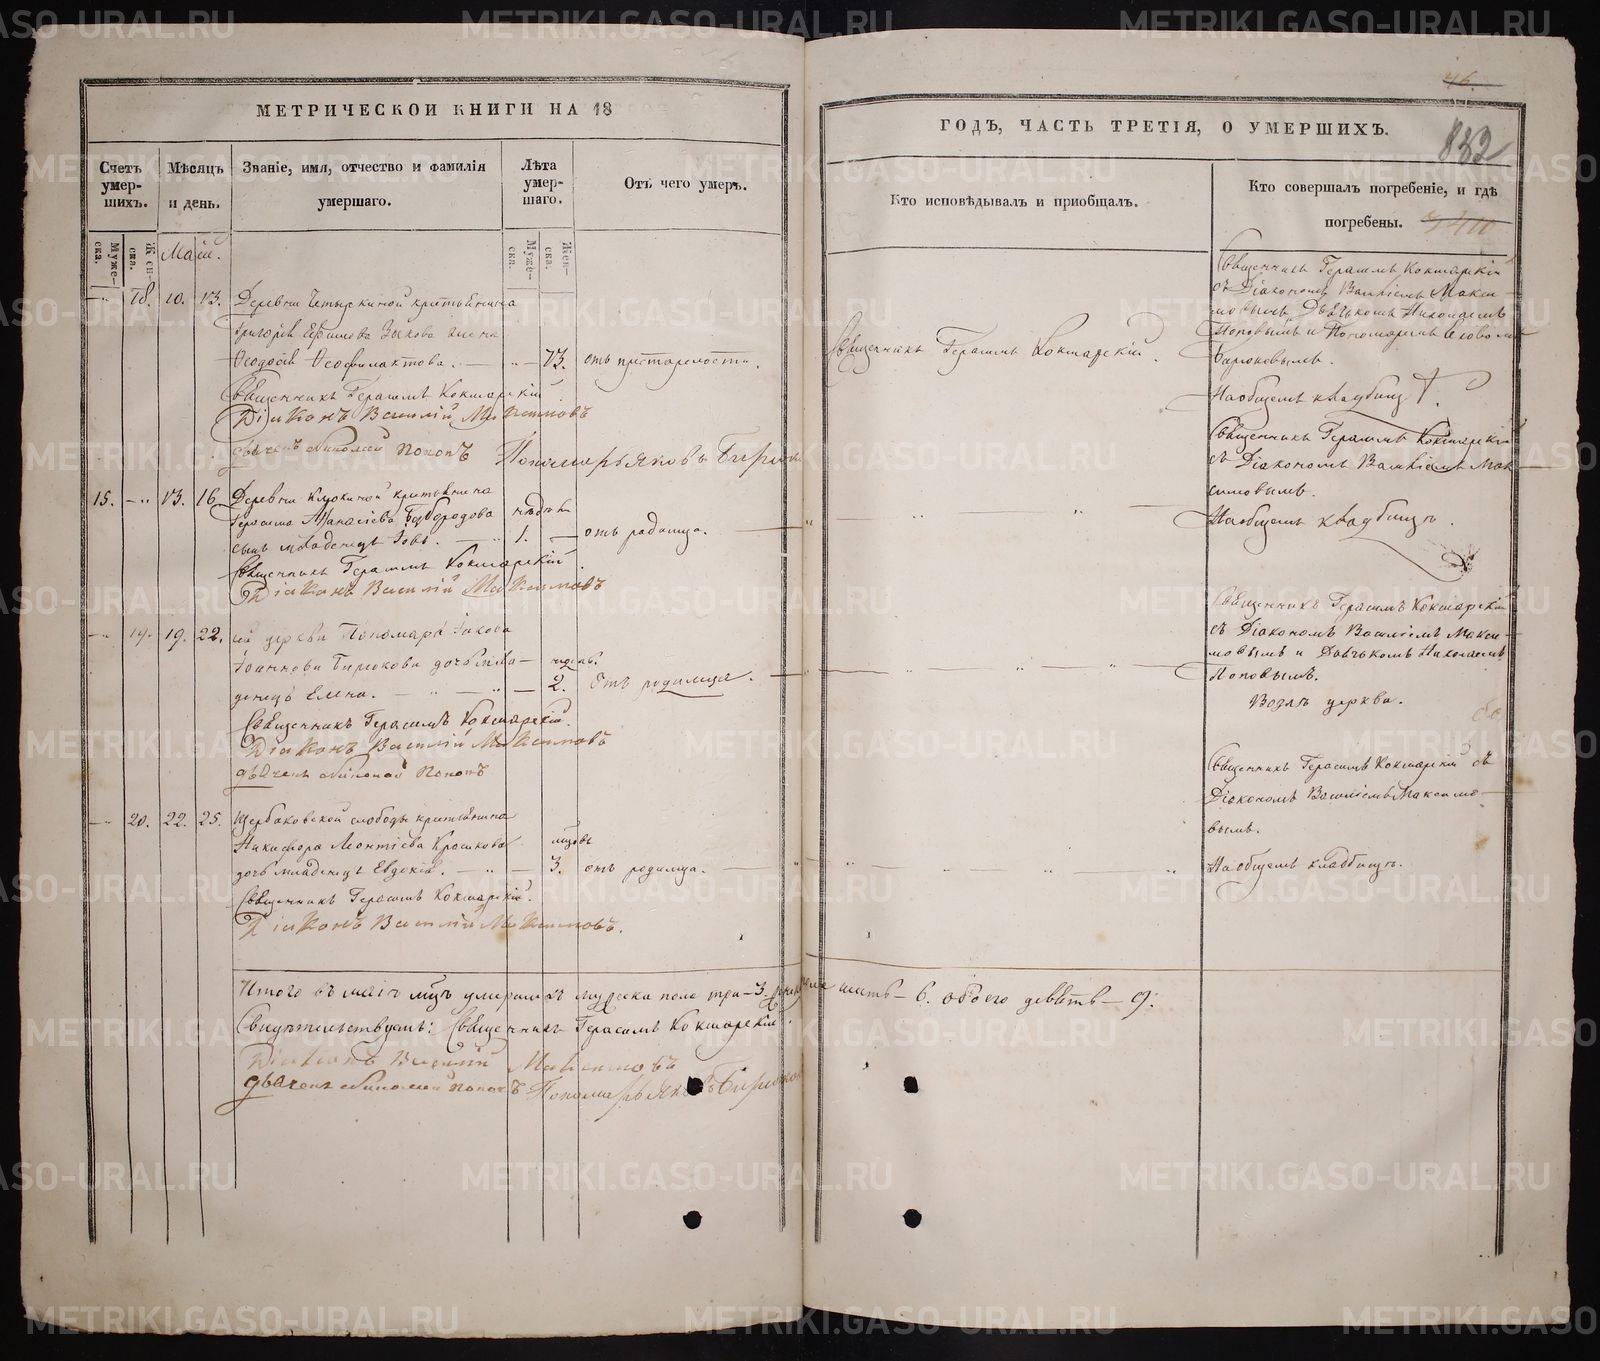 МЕТРИЧЕСКОЙ КНИГИ НА 18
Счетъ умер- шихъ.
Мѣсяцъ и день.
Званіе, имя, отчество и фамилія умершаго.
Лѣта умер- шаго.
Отъ чего умеръ.
Муже- ска.
Женска.
Муже- ска.
Жен- ска.
Маій.
18. 10. 13. Деревни Четыркиной крестьянина
Григорія Ефимова Зыкова жена
Ѳеодосія Ѳеофилактова. 73. отъ престарелости.
Священникъ Герасимъ Кокшарскій
Діаконъ Василій Максимовъ
Дьячекъ Николай Поповъ Пономарь Яковъ Бирюковъ
15. 13. 16. Деревни крестьянина
Герасима Беzбородова недель
сынъ младенецъ Іовъ. 1. отъ родимца.
Священникъ Герасимъ Кокшарскій
Діаконъ Василій Максимовъ
19. 19. 22. церкви Пономаря Іакова
Іоаннова Бирюкова дочь мла-
денецъ Елена. 2. Отъ родимца.
Священникъ Герасимъ Кокшарскій.
Діаконъ Василій Максимовъ
Дьячекъ Николай Поповъ
20. 22. 25. Щербаковской слободы крестьянина
Никифора Леонтіева
дочь младенецъ Евдокія. 3. отъ родимца.
Священникъ Герасимъ Кокшарскій.
Діаконъ Василій Максимовъ.
Итого въ маіѣ мцѣ умершихъ мужеска пола три—3. женска шесть—6. обоего девять—9.
Свидѣтельствуемъ: Священникъ Герасимъ Кокшарскій.
Діаконъ Василій Максимовъ
Дьячекъ Николай Поповъ Пономарь Яковъ Бирюковъ
46.
832
ГОДЪ, ЧАСТЬ ТРЕТІЯ, О УМЕРШИХЪ.
Кто исповѣдывалъ и приобщалъ.
Кто совершалъ погребеніе, и гдѣ погребены.
Священникъ Герасимъ Кокшарскій.
Священникъ Герасимъ Кокшарскій
съ Діакономъ Василіемъ Макси-
мовымъ, Дьячькомъ Николаемъ
Поповымъ и Пономаремъ Іаковомъ
Бирюковымъ.
На общемъ кладбищѣ.
Священникъ Герасимъ Кокшарскій
съ Діакономъ Василіемъ Мак-
симовымъ.
На общемъ кладбищѣ.
Священникъ Герасимъ Кокшарскій
съ Діакономъ Василіемъ Макси-
мовымъ и Дьячькомъ Николаемъ
Поповымъ.
Возлѣ церкви.
Священникъ Герасимъ Кокшарскій съ
Діакономъ Василіемъ Максимо-
вымъ.
На общемъ кладбищѣ.
METRIKI.GASO-URAL.RU